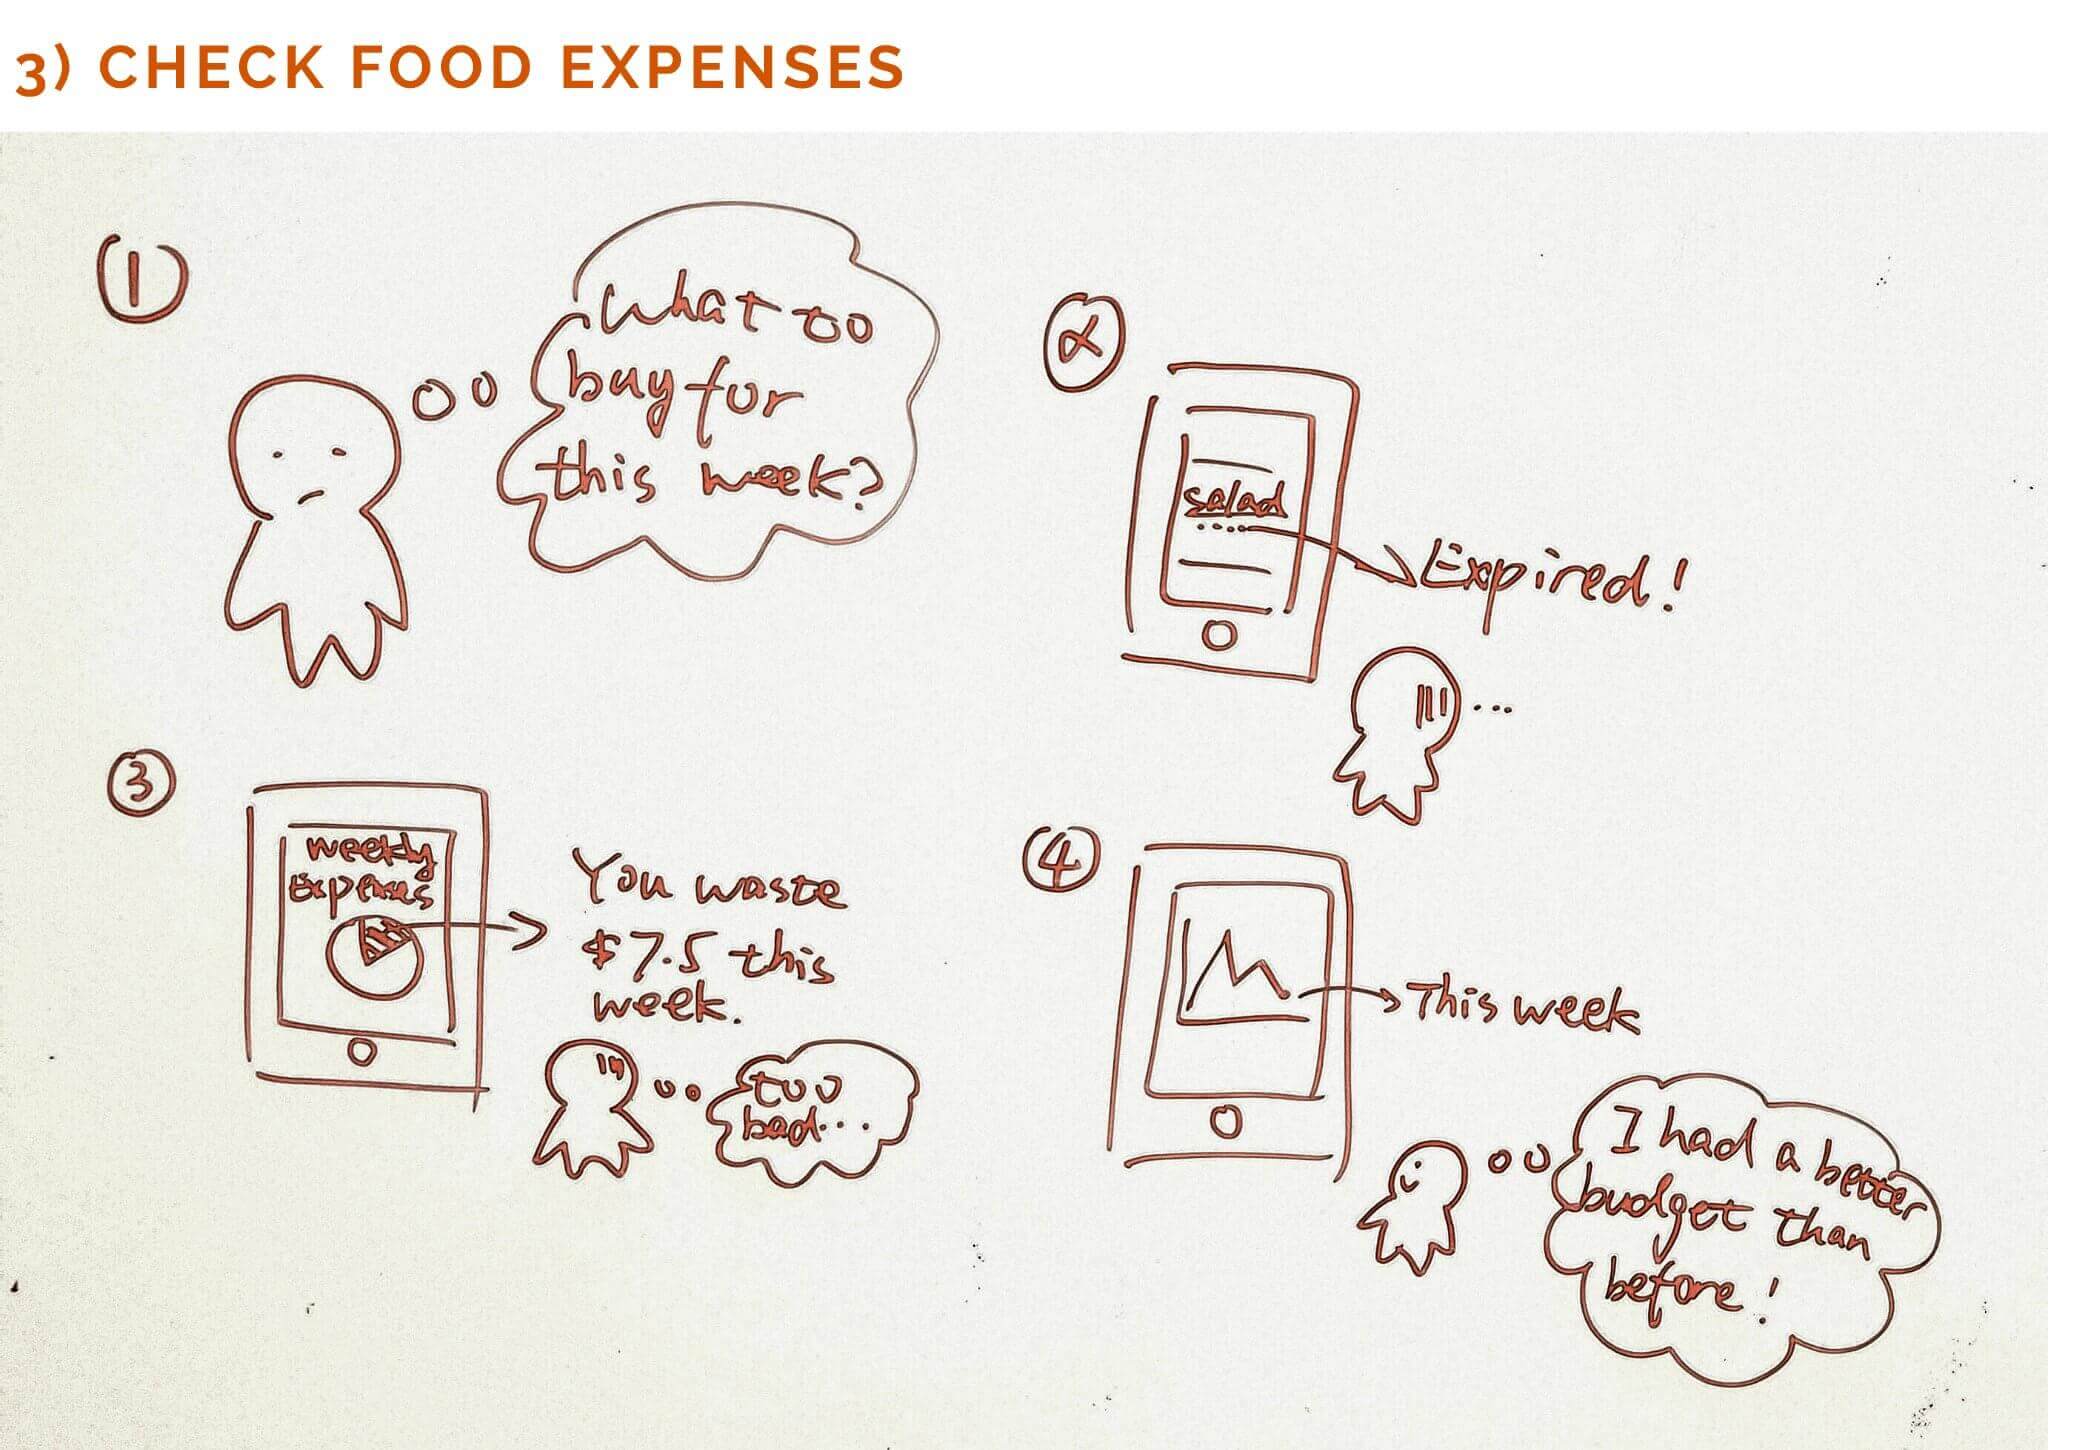 3) CHECK FOOD EXPENSES
1
What to
buy for
this week?
2
salad
Expired!
...
3
weekly
Expenses
You waste
$7.5 this
week.
too
bad...
4
This week
I had a better
budget than
before!